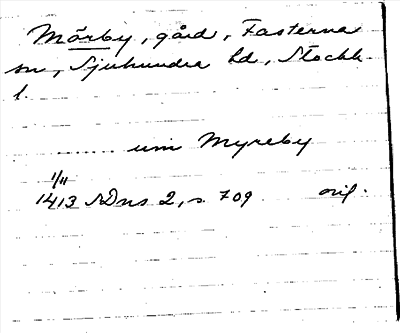 Mörby, gård, Fasterna
sn, Sjuhundra hd, Stockh.
l.
...... um Myreby
1/11
1413 SDns 2, s. 709 orig.